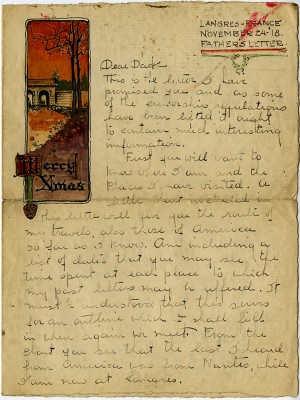 LANGRES-FRANCE
NOVEMBER 24-'18.
FATHER'S LETTER.
Dear Dad:
This is the letter I have
promised you and as some
of the censorship regulations
have been lifted I ought
to contain much interesting
information.
First you will want to
know where I am and the
places I have visited. A
little included in
this letter will give you the route of
my travels, also those of America
so far as I know. Am including a
list of dates that you may see the
time spent at each place to which
my past letters may be referred. It
must be understood that this serves
for an outline which I shall fill
in when again we meet. From the
chart you see that the last I heard
from America was from Nantes, while
I am now at Langres.
Merry
Xmas